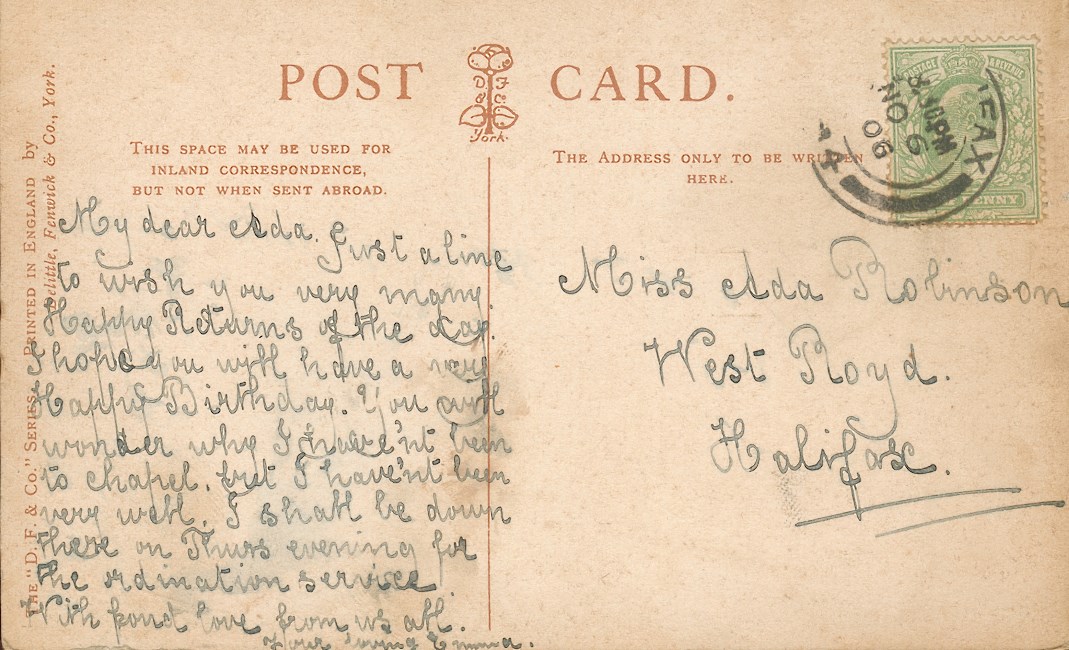 POST CARD.
D F
& Co
York.
THIS SPACE MAY BE USED FOR
INLAND CORRESPONDENCE,
BUT NOT WHEN SENT ABROAD.
THE ADDRESS ONLY TO BE WRITTEN
HERE.
THE "D. F. & Co." SERIES. PRINTED IN ENGLAND by
Delittle, Fenwick & Co., York.
My dear Ada. Just a line
to wish you very many
Happy Returns of the day.
I hope you will have a very
Happy Birthday. You will
wonder why I have'nt been
to chapel. but I have'nt been
very well. I shall be down
there on Thurs evening for
the ordination service
With fond love from us all.
Your loving Emma.
Miss Ada Robinson
West Royd.
Halifax.
POSTAGE & REVENUE
PENNY
IFAX
PM
NO 6
06